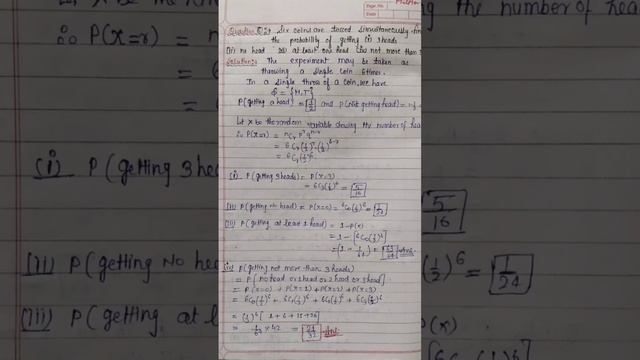 Question Q2: Six coins are tossed simultaneously. find
the probability of getting (i) 3 heads
(ii) no head (iii) at least one head (iv) not more than 3
Solution:- The experiment may be taken as
throwing a single coin 6 times.
In a single throw of a coin, we have
S = {H,T}
P(getting a head) = 1/2 and P(not getting head) = 1-1/2
Let X be the random variable showing the number of hea
∴ P(X=r) = nCr p^r q^n-r
= 6Cr (1/2)^r (1/2)^6-r
= 6Cr (1/2)^6
(i) P(getting 3 heads) = P(X=3)
= 6C3 (1/2)^6 = 5/16
(ii) P(getting No head) = P(X=0) = 6C0 (1/2)^6 = 1/24
(iii) P(getting at least 1 head) = 1-P(x)
= 1 - [6C0 (1/2)^6]
= (1 - 1/64) = 63/64 Ans.
(iv) P(getting not more than 3 heads)
= P[no head or 1 head or 2 head or 3 head]
= P(X=0) + P(X=1) + P(X=2) + P(X=3)
= 6C0 (1/2)^6 + 6C1 (1/2)^6 + 6C2 (1/2)^6 + 6C3 (1/2)^6
= (1/2)^6 [1 + 6 + 15 + 20]
= 1/64 × 42 = 21/32 Ans.
∴ P(X=r) =
(i) P(getting 3 hea
(ii) P(getting No
(iii) P(getting at l
the number of hea
5/16
(1/2)^6 = 1/24